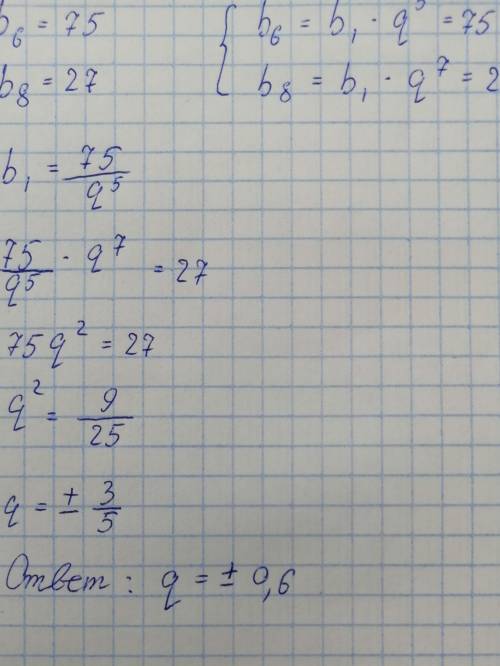 b₆ = 75
b₈ = 27
{ b₆ = b₁ · q⁵ = 75
b₈ = b₁ · q⁷ = 2
b₁ = 75/q⁵
75/q⁵ · q⁷ = 27
75q² = 27
q² = 9/25
q = ± 3/5
Ответ: q = ± 0,6